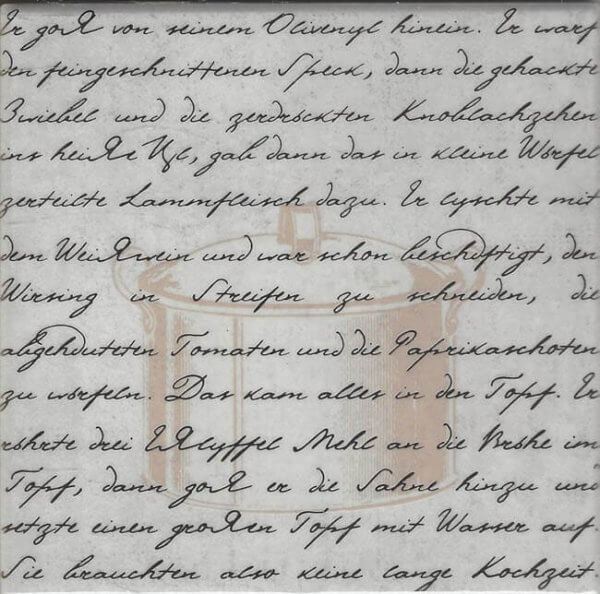 Er goЯ von seinem Olivenцl hinein. Er warf
den feingeschnittenen Speck, dann die gehackte
Zwiebel und die zerdrьckten Knoblachzehen
ins heiЯe Цl, gab dann das in kleine Wьrfel
zerteilte Lammfleisch dazu. Er lцschte mit
dem WeiЯwein und war schon beschдftigt, den
Wirsing in Streifen zu schneiden, die
abgehдuteten Tomaten und die Paprikaschoten
zu wьrfeln. Das kam alles in den Topf. Er
rьhrte drei EЯlцffel Mehl an die Brьhe im
Topf, dann goЯ er die Sahne hinzu und
setzte einen groЯen Topf mit Wasser auf.
Sie brauchten also keine lange Kochzeit.